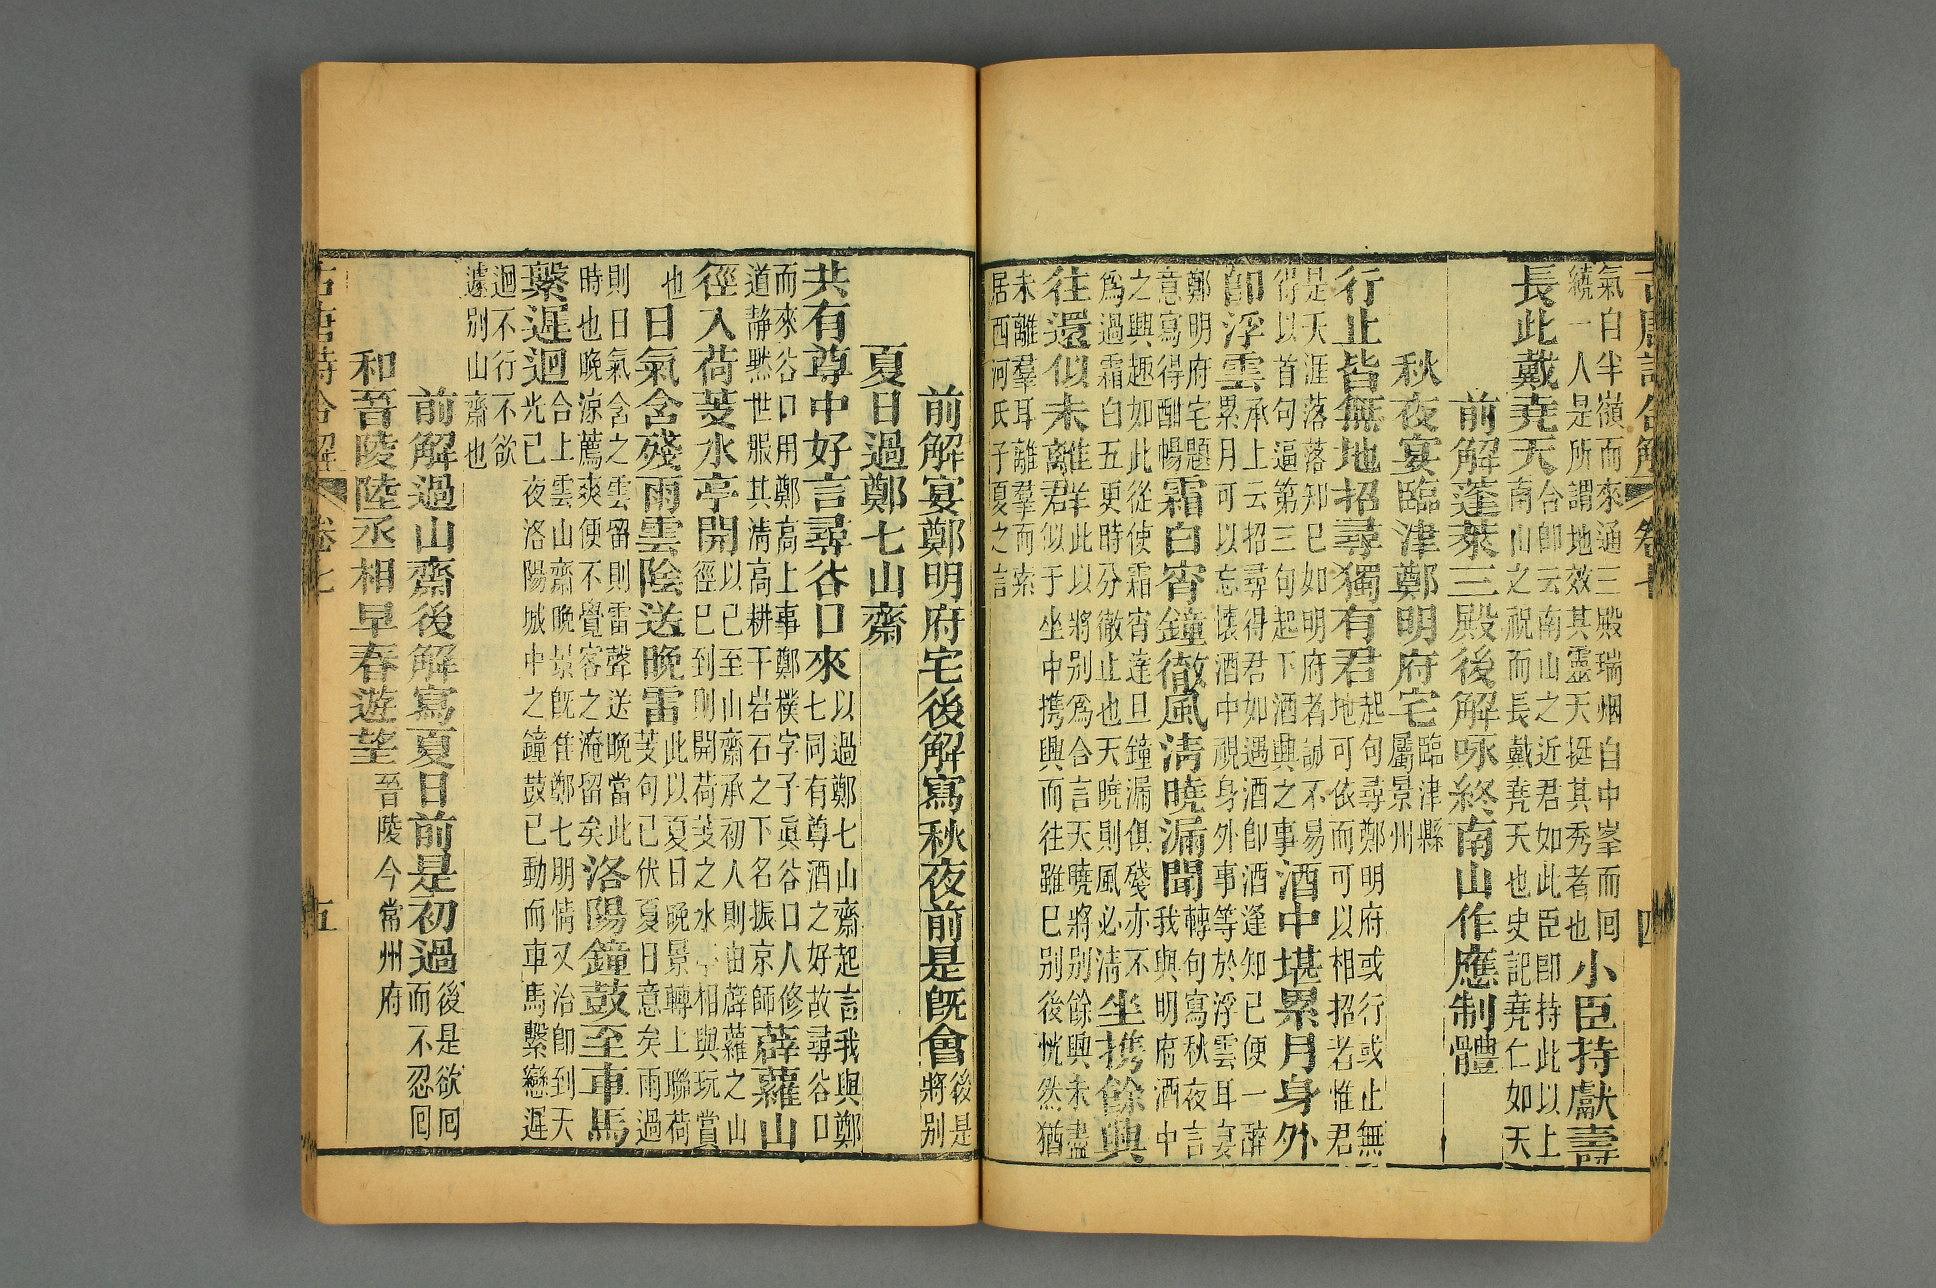 古唐詩合解 卷七 四
氣白半嶺而來通三殿瑞烟自中峯而回
繞一人是所謂地效其靈天挺其秀者也
小臣持獻壽
長此戴堯天
合卽云南山之近君如此臣卽持此以上
南山之祝而長戴堯天也史記堯仁如天
前解蓬萊三殿後解咏終南山作應制體
秋夜宴臨津鄭明府宅
臨津縣
屬景州
行止皆無地招尋獨有君
起句尋鄭明府或行或止無
地可依而可以相招者惟君
是天涯落落知已如明府者誠不易
得以首句逼第三句起下酒興之事
酒中堪累月身外
卽浮雲
承上云招尋得君如遇酒卽酒逢知已便一辭
累月可以忘懷酒中視身外事等於浮雲耳宴
鄭明府宅題
意寫得酣暢
霜白宵鐘徹風清曉漏聞
轉句寫秋夜言
我與明府酒中
之興趣如此從使霜宵達旦鐘漏俱殘亦不
爲過霜白五更時分徹止也天曉則風必清
坐携餘興
往還似未離羣
此以將别爲合言天曉將别餘興未盡
似于坐中携興而往雖已别後恍然猶
未離羣耳離羣而索
居西河氏子夏之言
前解宴鄭明府宅後解寫秋夜前是旣會
後是
將别
夏日過鄭七山齋
共有尊中好言尋谷口來
以過鄭七山齋起言我與鄭
七同有尊酒之好故尋谷口
而來谷口用鄭高上事鄭樸字子眞谷口人修
道静黙世服其清高耕于岩石之下名振京師
薜蘿山
徑入荷芰水亭開
以已至山齋承初人則由薜蘿之山
徑已到則開荷芰之水亭相與玩賞
也
日氣含殘雨雲陰送晚雷
此以夏日晚景轉上聯荷
芰句已伏夏日意矣雨過
則日氣含之雲留則雷聲送晚當此
時也晚涼薦爽便不覺客之淹留矣
洛陽鐘鼓至車馬
繫遲迴
合上雲山齋晚景旣佳鄭七朋情又治卽到天
光已夜洛陽城中之鐘鼓已動而車馬繫戀遲
迴不行不欲
遽别山齋也
前解過山齋後解寫夏日前是初過
後是欲囘
而不忍囘
和晉陵陸丞相早春遊望
晉陵今常州府
古唐詩合解 卷七 五